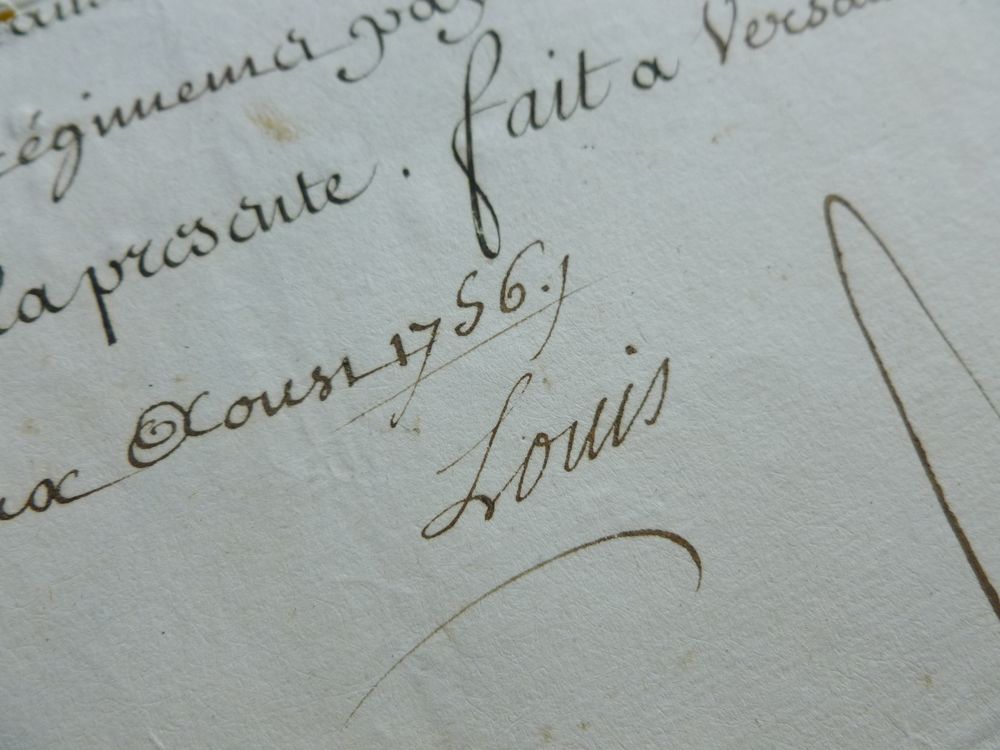 régiment a
la presente. fait a Versai
Aoust 1756.
Louis